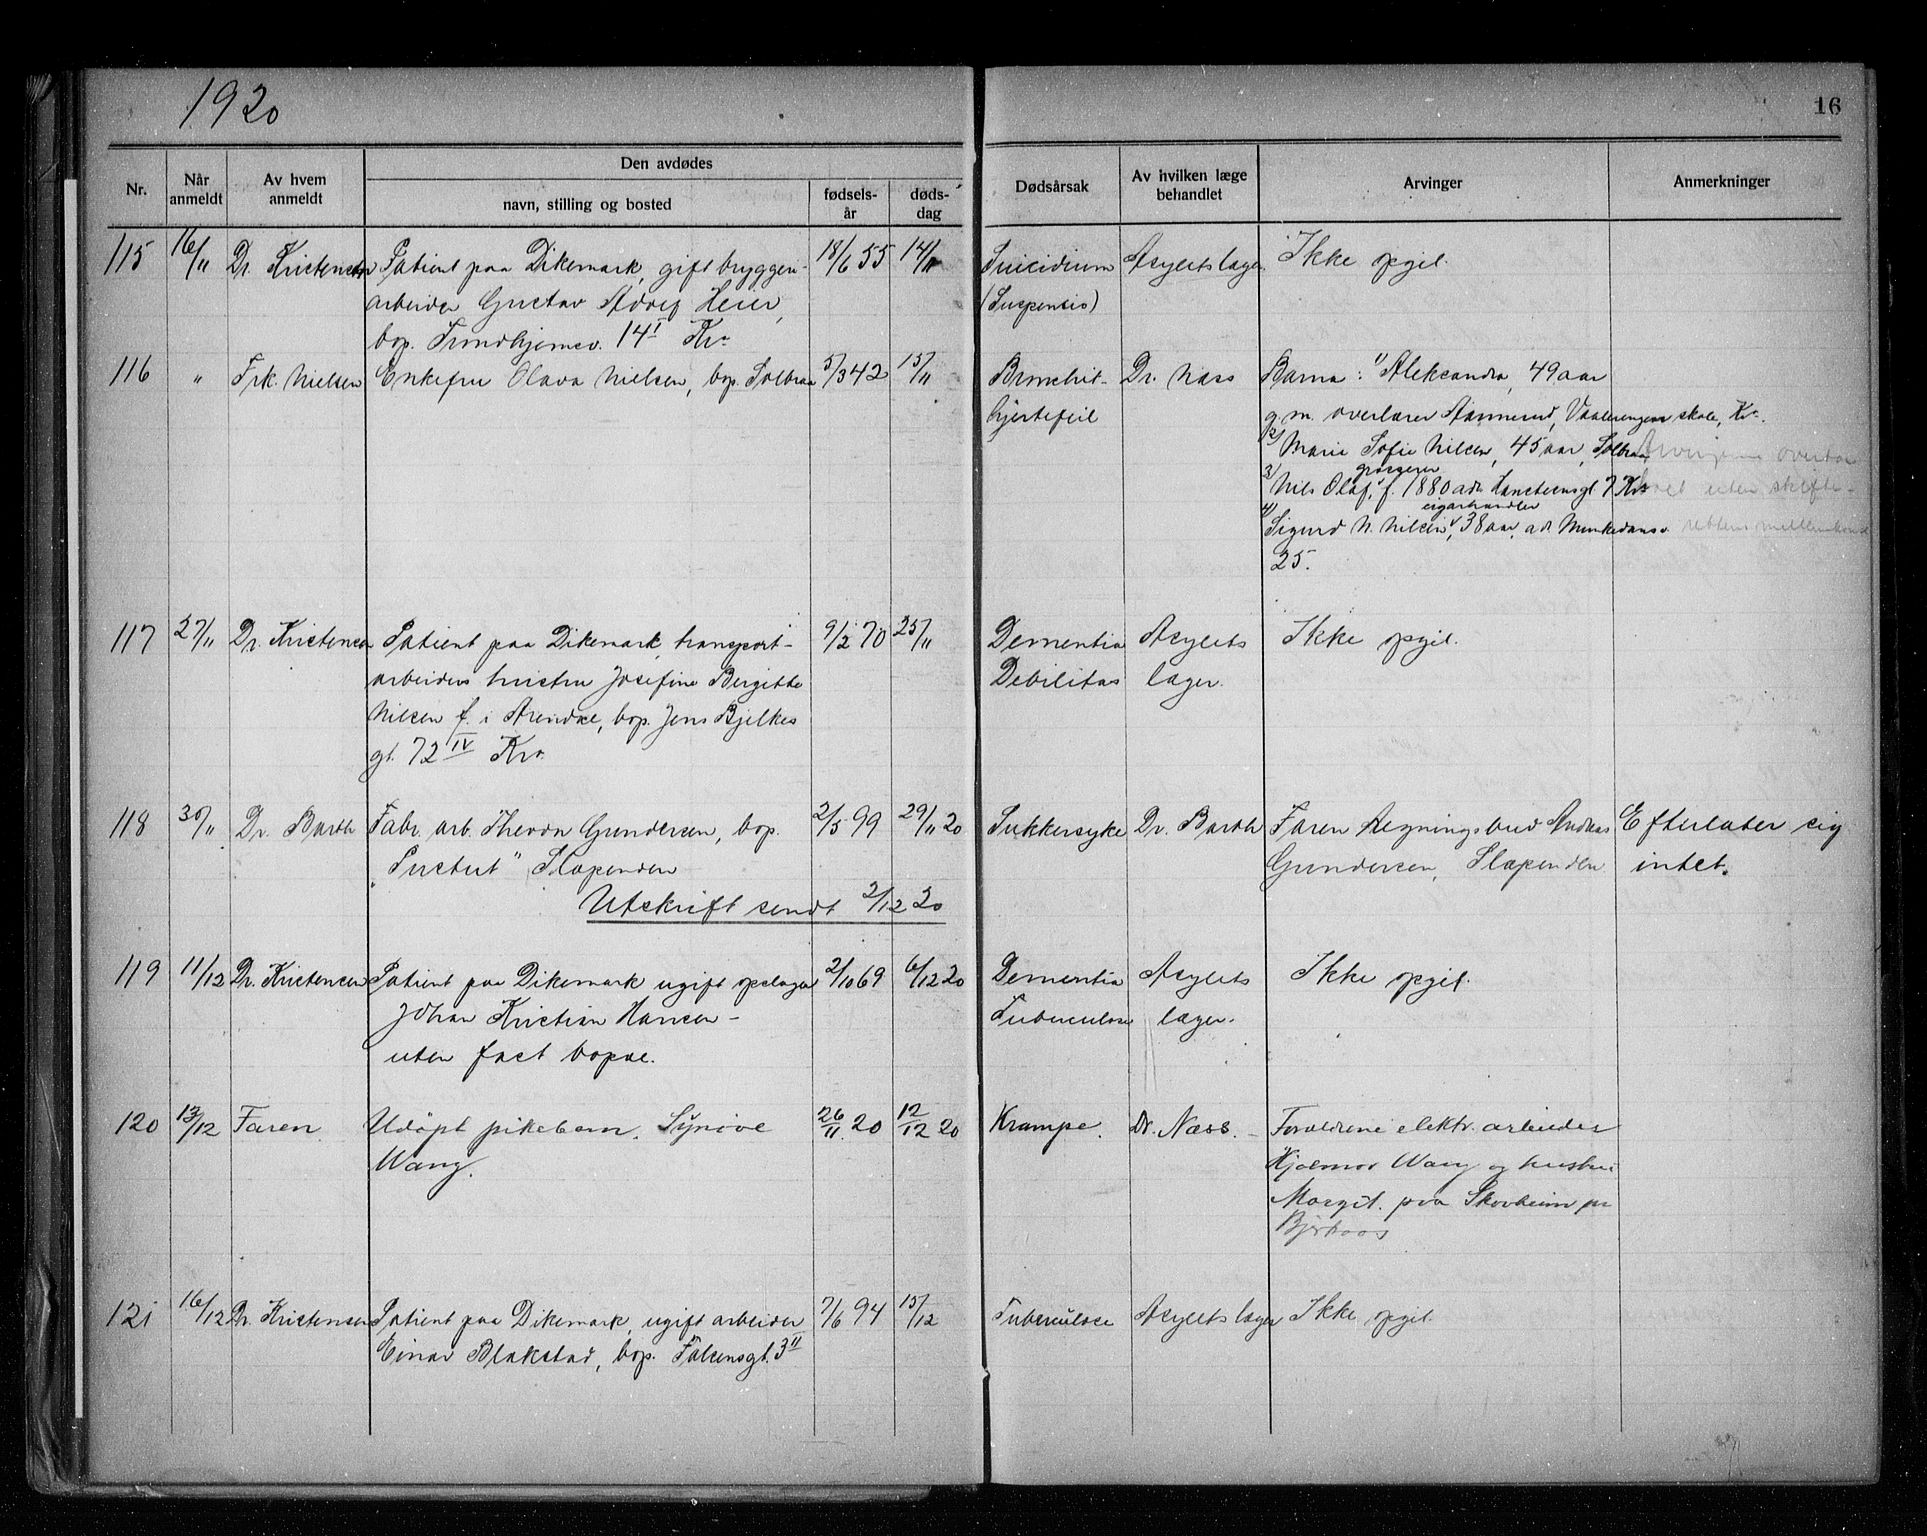 1920
16
Nr.
Når anmeldt
Av hvem anmeldt
Den avdødes
navn, stilling og bosted
fødsels-år
døds-dag
Dødsårsak
Av hvilken læge behandlet
Arvinger
Anmerkninger
115 16/11 Dr. Kristensen Patient paa Dikemark, gift bryggeri- 18/6 55 14/11 Suicidium Asylets læger. Ikke opgit.
arbeider Gustav Adolf Heier, (Suspensio)
bop. Trondhjemsv. 14 I Kr.a
116 " Frk. Nielsen Enkefru Olava Nielsen, bop. Solbraa 5/3 42 15/11 Bronchit- Dr. Næss Barna: 1) Aleksandra, 49 aar
hjertefeil g. m. overlærer Aamerud, Vaalerengens skole, Kr.a
2) Marie Sofie Nilsen, 45 aar, Solbraa Arvingene overtar
grosserer
3) Nils Olaf, f. 1880 adr. Hansteensgt 7 Kr.a boet uten skifte-
cigarhandler
4) Sigurd N. Nilsen, 38 aar, adr. Munkedamsv. rettens mellemkomst
25.
117 27/11 Dr. Kristensen Patient paa Dikemark, transport- 9/2 70 25/11 Dementia Asylets Ikke opgit.
arbeiders hustru Josefine Bergitte Debilitas læger.
Nilsen f. i Arendal, bop. Jens Bjelkes
gt. 72 IV Kr.a
118 30/11 Dr. Barth Fabr. arb. Thevda Gundersen, bop. 2/5 99 29/11 20 Sukkersyke Dr. Barth Faren Regningsbud Andreas Efterlater sig
" Slependen Gundersen, Slependen intet.
Utskrift sendt 2/12 20
119 11/12 Dr. Kristensen Patient paa Dikemark ugift opslager 2/10 69 6/12 20 Dementia Asylets Ikke opgit.
Johan Kristian Hansen - Tuberculose læger.
uten fast bopæl.
120 13/12 Faren Udøpt pikebarn, Synøve 26/11 20 12/12 20 Krampe. Dr. Næss. - Forældrene elektr. arbeider
Wang. Hjalmar Wang og hustru
Margit. paa Skovheim pr
121 16/12 Dr. Kristensen Patient paa Dikemark, ugift arbeider 7/6 94 15/12 Tuberculose Asylets læger Ikke opgit.
Einar Blakstad, bop. Falsensgt. 3 II